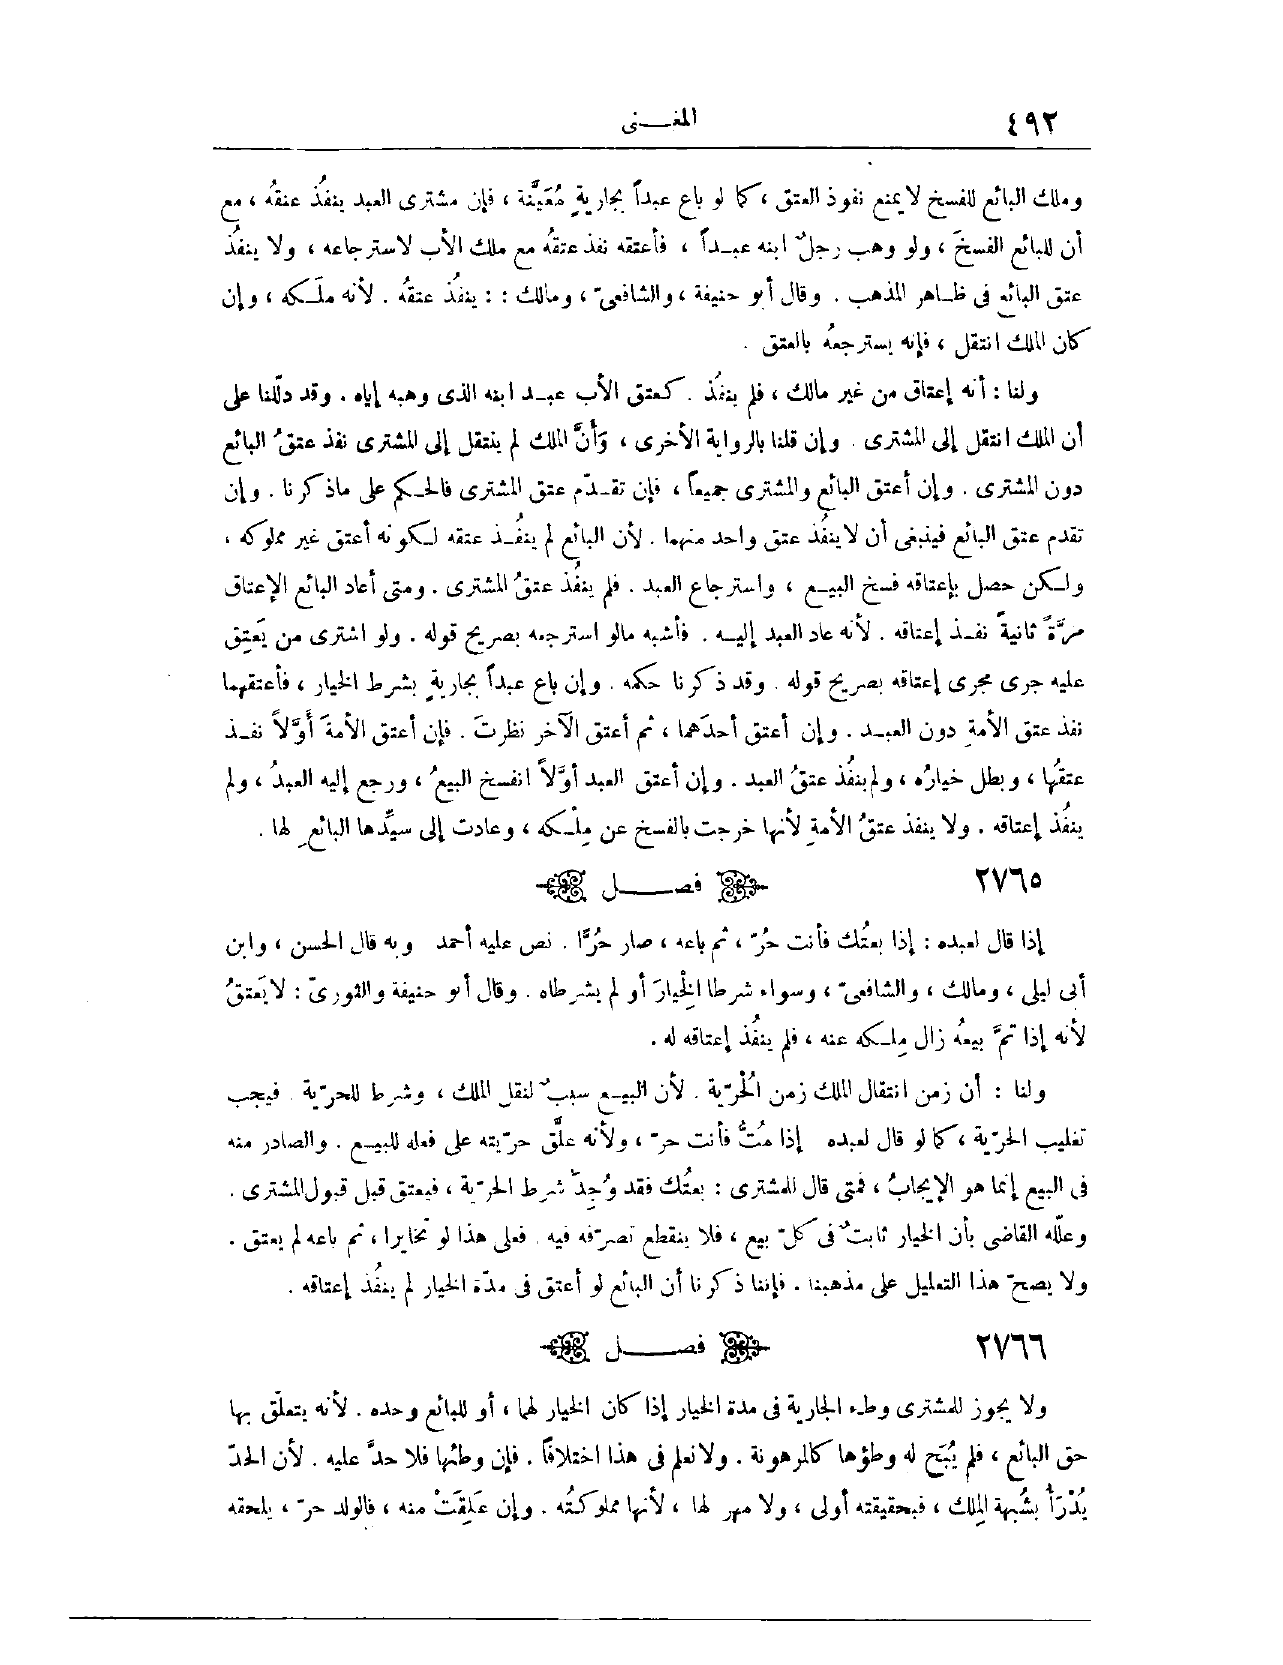 ٤٩٢
المغـــنى
وملك البائع للفسخ لا يمنع نفوذ العتق ، كما لو باع عبداً بجاريةٍ مُعَيَّنة ، فإن مشترى العبد ينفُذ عتقُه ، مع
أن للبائع الفسخَ ، ولو وهب رجلٌ ابنه عبـداً ، فأعتقه نفذ عتقُه مع ملك الأب لاسترجاعه ، ولا ينفُذ
عتق البائع فى ظـاهر المذهب . وقال أبو حنيفة ، والشافعىّ ، ومالك : : ينفُذ عتقُه . لأنه ملَـكه ، وإن
كان الملك انتقل ، فإنه يسترجعُه بالعتق .
ولنا : أنه إعتاق من غير مالك ، فلم ينفُذ . كعتق الأب عبـد ابنه الذى وهبه إياه . وقد دلّلنا على
أن الملك انتقل إلى المشترى . وإن قلنا بالرواية الأخرى ، وَأنَّ الملك لم ينتقل إلى المشترى نفذ عتقُ البائع
دون المشترى . وإن أعتق البائع والمشترى جميعاً ، فإن تقـدّم عتق المشترى فالحـكم على ماذكرنا . وإن
تقدم عتق البائع فينبغى أن لاينفُذ عتق واحد منهما . لأن البائع لم ينفُـذ عتقه لـكونه أعتق غير مملوكه ،
ولـكن حصل بإعتاقه فسخ البيـع ، واسترجاع العبد . فلم ينفُذ عتقُ المشترى . ومتى أعاد البائع الإعتاق
مرَّةً ثانيةً نفـذ إعتاقه . لأنه عاد العبد إليـه . فأشبه مالو استرجعه بصريح قوله . ولو اشترى من يَعتِق
عليه جرى مجرى إعتاقه بصريح قوله . وقد ذكرنا حكمه . وإن باع عبداً بجاريةٍ بشرط الخيار ، فأعتقهما
نفذ عتق الأمةِ دون العبـد . وإن أعتق أحدَهما ، ثم أعتق الآخر نظرتَ . فإن أعتق الأمةَ أَوَّلاً نفـذ
عتقُها ، وبطل خيارُه ، ولم ينفُذ عتقُ العبد . وإن أعتق العبد أوّلاً انفسخ البيعُ ، ورجع إليه العبدُ ، ولم
ينفُذ إعتاقه . ولا ينفذ عتقُ الأمةِ لأنها خرجت بالفسخ عن مِلْـكه ، وعادت إلى سيِّدها البائعِ لها .
٢٧٦٥
فصـــل
إذا قال لعبده : إذا بعتُك فأنت حُرّ ، ثم باعه ، صار حُرًّا . نص عليه أحمد وبه قال الحسن ، وابن
أبى ليلى ، ومالك ، والشافعىّ ، وسواء شرطا الخِيارَ أو لم يشرطاه . وقال أبو حنيفة والثورىّ : لا يَعتقُ
لأنه إذا تمَّ بيعُه زال مِلـكه عنه ، فلم ينفُذ إعتاقه له .
ولنا : أن زمن انتقال الملك زمن الُحْرّية . لأن البيـع سببٌ لنقل الملك ، وشرط للحرّية . فيجب
تغليب الحرّية ، كما لو قال لعبده إذا مُتُّ فأنت حرّ ، ولأنه علّق حرّيته على فعله للبيـع . والصادر منه
فى البيع إنما هو الإيجابُ ، فمتى قال للمشترى : بعتُك فقد وُجِدَ شرط الحرّية ، فيعتق قبل قبول المشترى .
وعلّله القاضى بأن الخيار ثابتٌ فى كلّ بيع ، فلا ينقطع تصرّفه فيه . فعلى هذا لو تخايرا ، ثم باعه لم يعتق .
ولا يصحّ هذا التعليل على مذهبنا . فإننا ذكرنا أن البائع لو أعتق فى مدّة الخيار لم ينفُذ إعتاقه .
٢٧٦٦
فصـــل
ولا يجوز للمشترى وطء الجارية فى مدة الخيار إذا كان الخيار لهما ، أو للبائع وحده . لأنه يتعلّق بها
حق البائع ، فلم يُبَح له وطؤها كالمرهونة . ولا نعلم فى هذا اختلافاً . فإن وطئها فلا حدَّ عليه . لأن الحدّ
يُدْرَأُ بشُبهة المِلك ، فبحقيقته أولى ، ولا مهر لها ، لأنها مملوكتُه . وإن عَلِقَتْ منه ، فالولد حرّ ، يلحقه